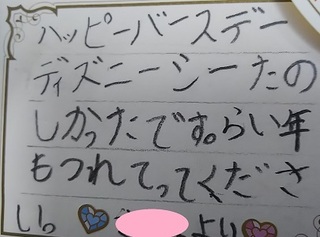 ハッピーバースデー
ディズニーシーたの
しかったです。らい年
もつれてってくださ
い。 より